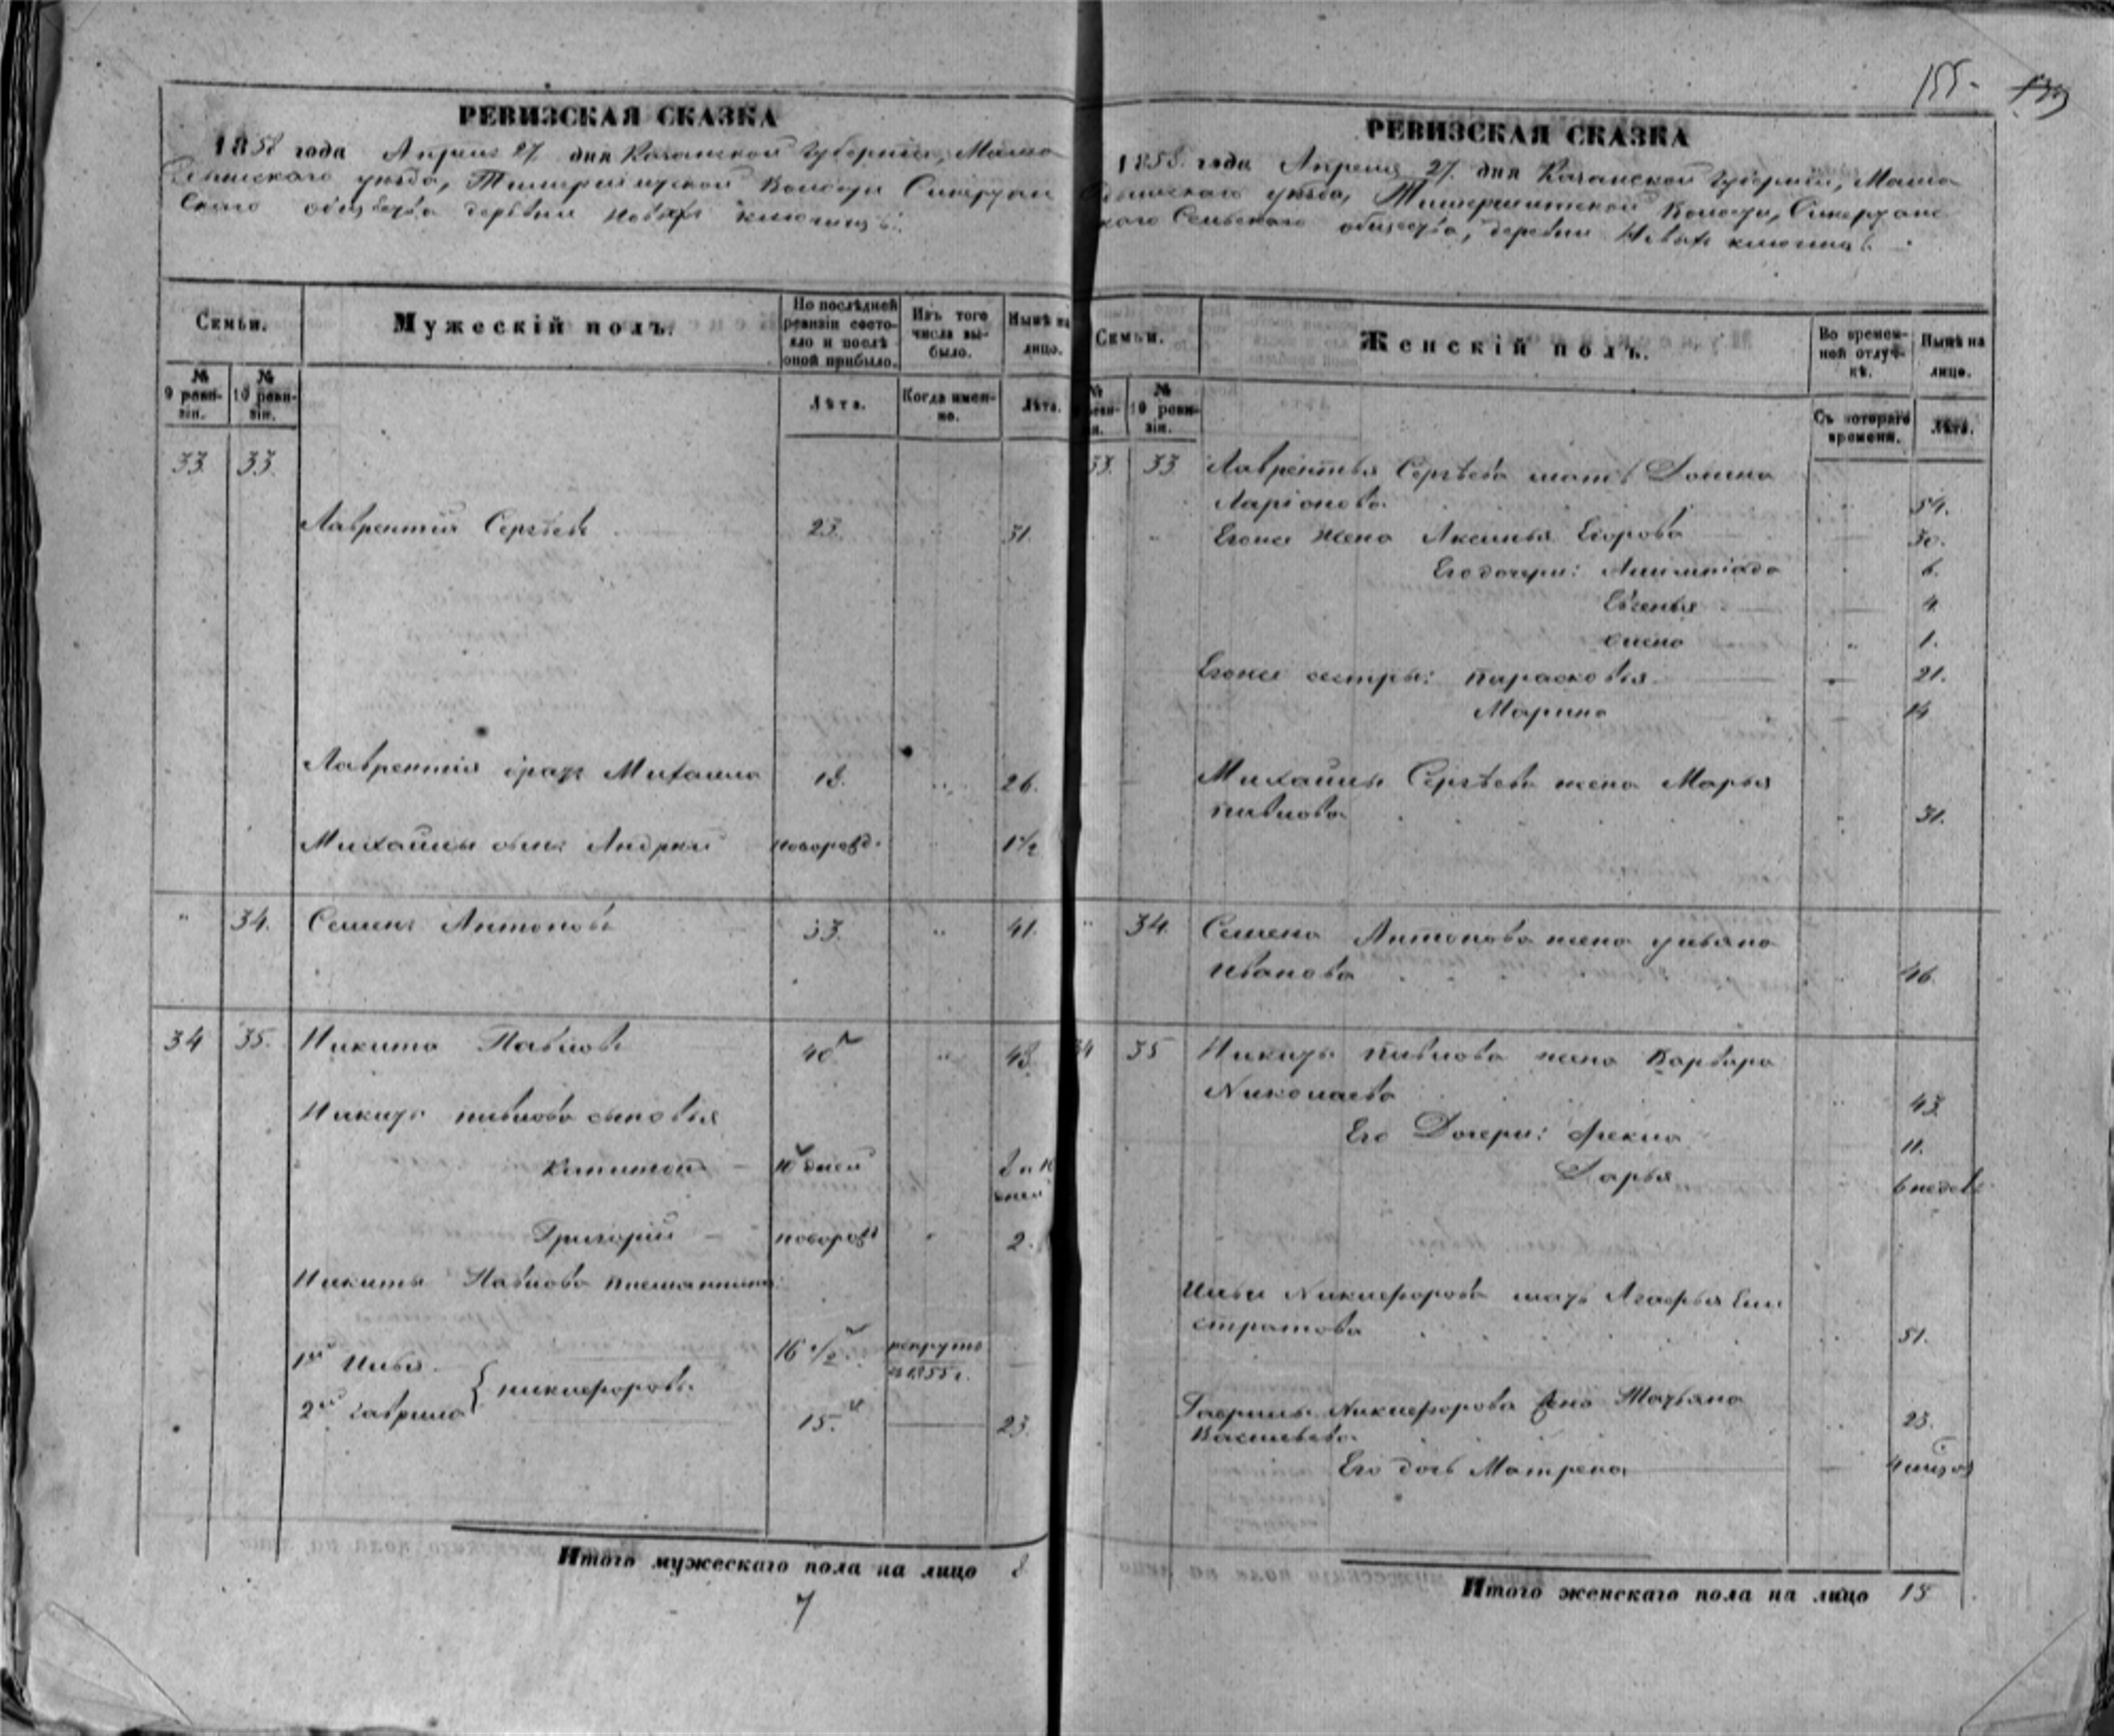 155.
РЕВИЗСКАЯ СКАЗКА
1858 года Апреля 27 дня Казанской губернии, Мама
дышскаго уезда, Тишерской Волости
скаго общества деревни Новыхъ ключищъ.
Семьи.
Мужескій полъ.
По послѣдней ревизіи состояло и послѣ оной прибыло.
Изъ того числа выбыло.
Нынѣ на лицо.
№ 9 ревизіи.
№ 10 ревизіи.
Лѣта.
Когда именно.
Лѣта.
33. 33.
Лаврентій Сергѣевъ 23. 31.
Лаврентія братъ Михаило 18. 26.
Михайлы сынъ Андрей новорожд. 1 1/2
" 34. Семенъ Антоновъ 33. " 41.
34 35. Никита Павловъ 40 " 48.
Никиты Павлова сыновья
10 дней 8 и 10
дней
Григорій новорожд 2.
Никиты Павлова племянники:
1й Илья 16 1/2 рекрутъ
въ 1855 г.
Никифоровы
2й Гаврило 15. 23.
Итого мужескаго пола на лицо 8
7
РЕВИЗСКАЯ СКАЗКА
1858 года Апреля 27 дня Казанской губерніи, Мама
дышскаго уѣзда, Волости,
скаго Сельскаго общества, деревни Новыхъ ключищъ.
Семьи.
Женскій полъ.
Во временной отлучкѣ.
Нынѣ на лицо.
№ ревизіи.
№ 10 ревизіи.
Съ котораго времени.
Лѣта.
33. 33 Лаврентья Сергѣева мать Домна
Ларіонова 54.
Егоже жена Аксинья Егорова 30.
Его дочери: Алимпіада 6.
Евгенья 4.
Елена 1.
Егоже сестры: Парасковья 21.
Марина 14
Михайлы Сергѣева жена Марья
Павлова 31.
" 34. Семена Антонова жена Ульяна
Иванова 46.
34 35 Никиты Павлова жена Варвара
Николаева 43.
Его Дочери: Фекла 11.
Дарья 6 недель
Ильи Никифорова мать Агафья Ели
стратова 51.
Гаврилы Никифорова жена Татьяна
Васильева 23.
Его дочь Матрена
Итого женскаго пола на лицо 15